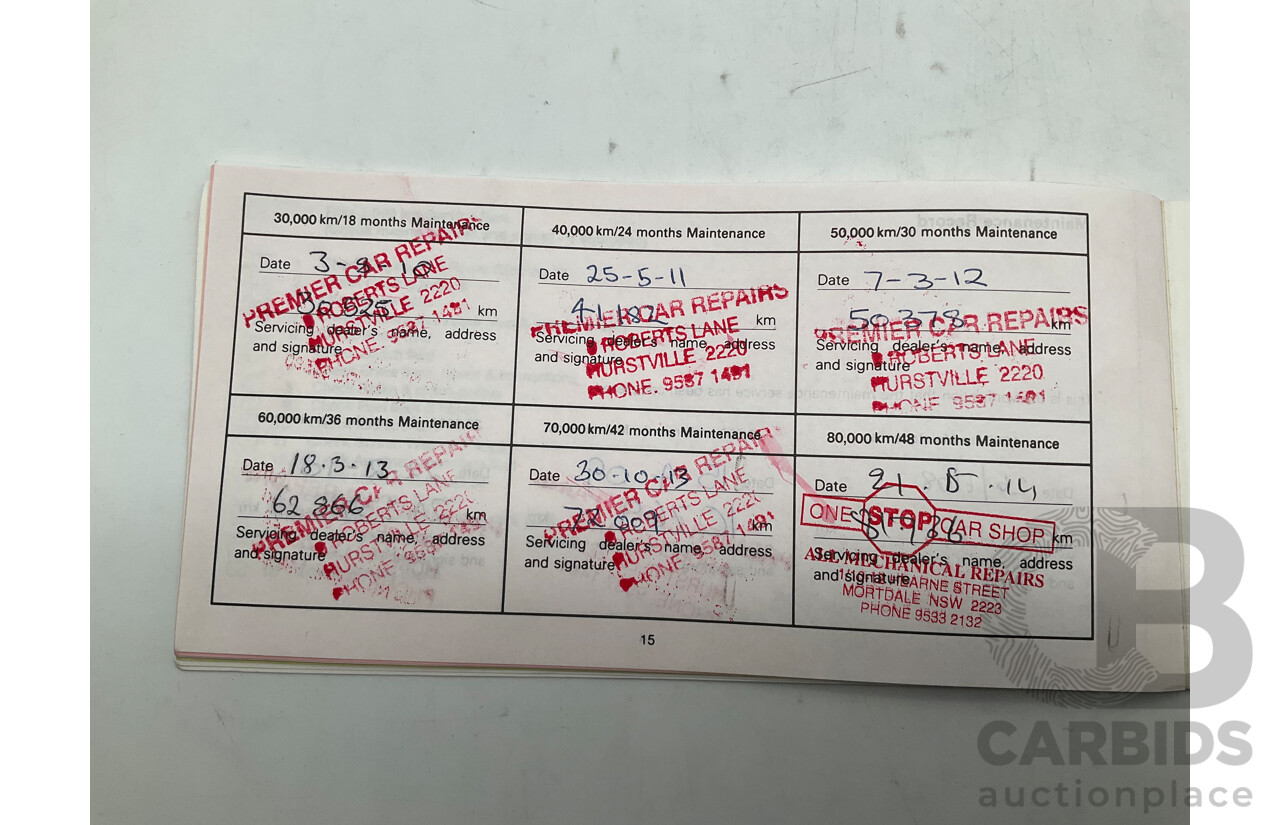 30,000 km/18 months Maintenance
Date 3-9-10
30 825 km
Servicing dealer's name, address
and signature
PREMIER CAR REPAIRS
ROBERTS LANE
HURSTVILLE 2220
PHONE. 9587 1481
40,000 km/24 months Maintenance
Date 25-5-11
km
Servicing dealer's name, address
and signature
PREMIER CAR REPAIRS
ROBERTS LANE
HURSTVILLE 2220
PHONE. 9587 1481
50,000 km/30 months Maintenance
Date 7-3-12
50 378 km
Servicing dealer's name, address
and signature
PREMIER CAR REPAIRS
ROBERTS LANE
HURSTVILLE 2220
PHONE 9587 1481
60,000 km/36 months Maintenance
Date 18.3.13
62 866 km
Servicing dealer's name, address
and signature
PREMIER CAR REPAIRS
ROBERTS LANE
HURSTVILLE 2220
PHONE
70,000 km/42 months Maintenance
Date 30-10-13
km
Servicing dealer's name, address
and signature
PREMIER CAR REPAIRS
ROBERTS LANE
HURSTVILLE 2220
PHONE. 9587 1481
80,000 km/48 months Maintenance
Date 14
km
ONE STOP CAR SHOP
Servicing dealer's name, address
and signature
ALL MECHANICAL REPAIRS
STREET
MORTDALE NSW 2223
PHONE 9533 2132
15
CARBIDS
auctionplace